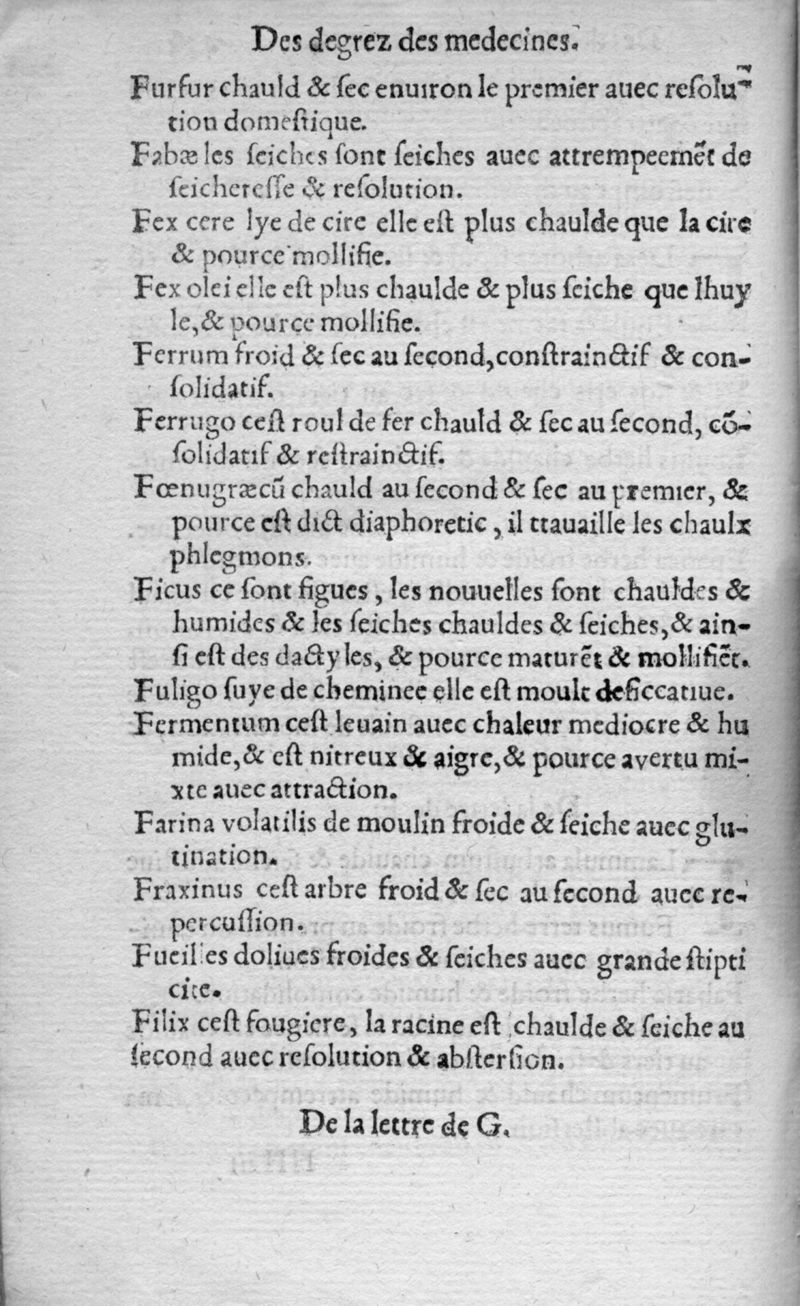 Des degrez des medecines.
Furfur chauld & ſec enuiron le premier auec reſolu-
tion domeſtique.
Fabæ les ſeiches ſont ſeiches auec attrempeemẽt de
ſeichereſſe & reſolution.
Fex cere lye de cire elle eſt plus chaulde que la cire
& pource mollifie.
Fex olei elle eſt plus chaulde & plus ſeiche que lhuy
le,& pource mollifie.
Ferrum froid & ſec au ſecond,conſtrainctif & con-
ſolidatif.
Ferrugo ceſt roul de fer chauld & ſec au ſecond, cõ-
ſolidatif & reſtrainctif.
Fœnugræcũ chauld au ſecond & ſec au premier, &
pource eſt dict diaphoretic, il ttauaille les chaulx
phlegmons.
Ficus ce ſont figues, les nouuelles ſont chauldes &
humides & les ſeiches chauldes & ſeiches,& ain-
ſi eſt des dactyles, & pource maturẽt & mollifiẽt.
Fuligo ſuye de cheminee elle eſt moult deſiccatiue.
Fermentum ceſt leuain auec chaleur mediocre & hu
mide,& eſt nitreux & aigre,& pource avertu mi-
xte auec attraction.
Farina volatilis de moulin froide & ſeiche auec glu-
tination.
Fraxinus ceſt arbre froid & ſec au ſecond auec re-
percuſſion.
Fueilles doliues froides & ſeiches auec grande ſtipti
cite.
Filix ceſt fougiere, la racine eſt chaulde & ſeiche au
ſecond auec reſolution & abſterſion.
De la lettre de G.